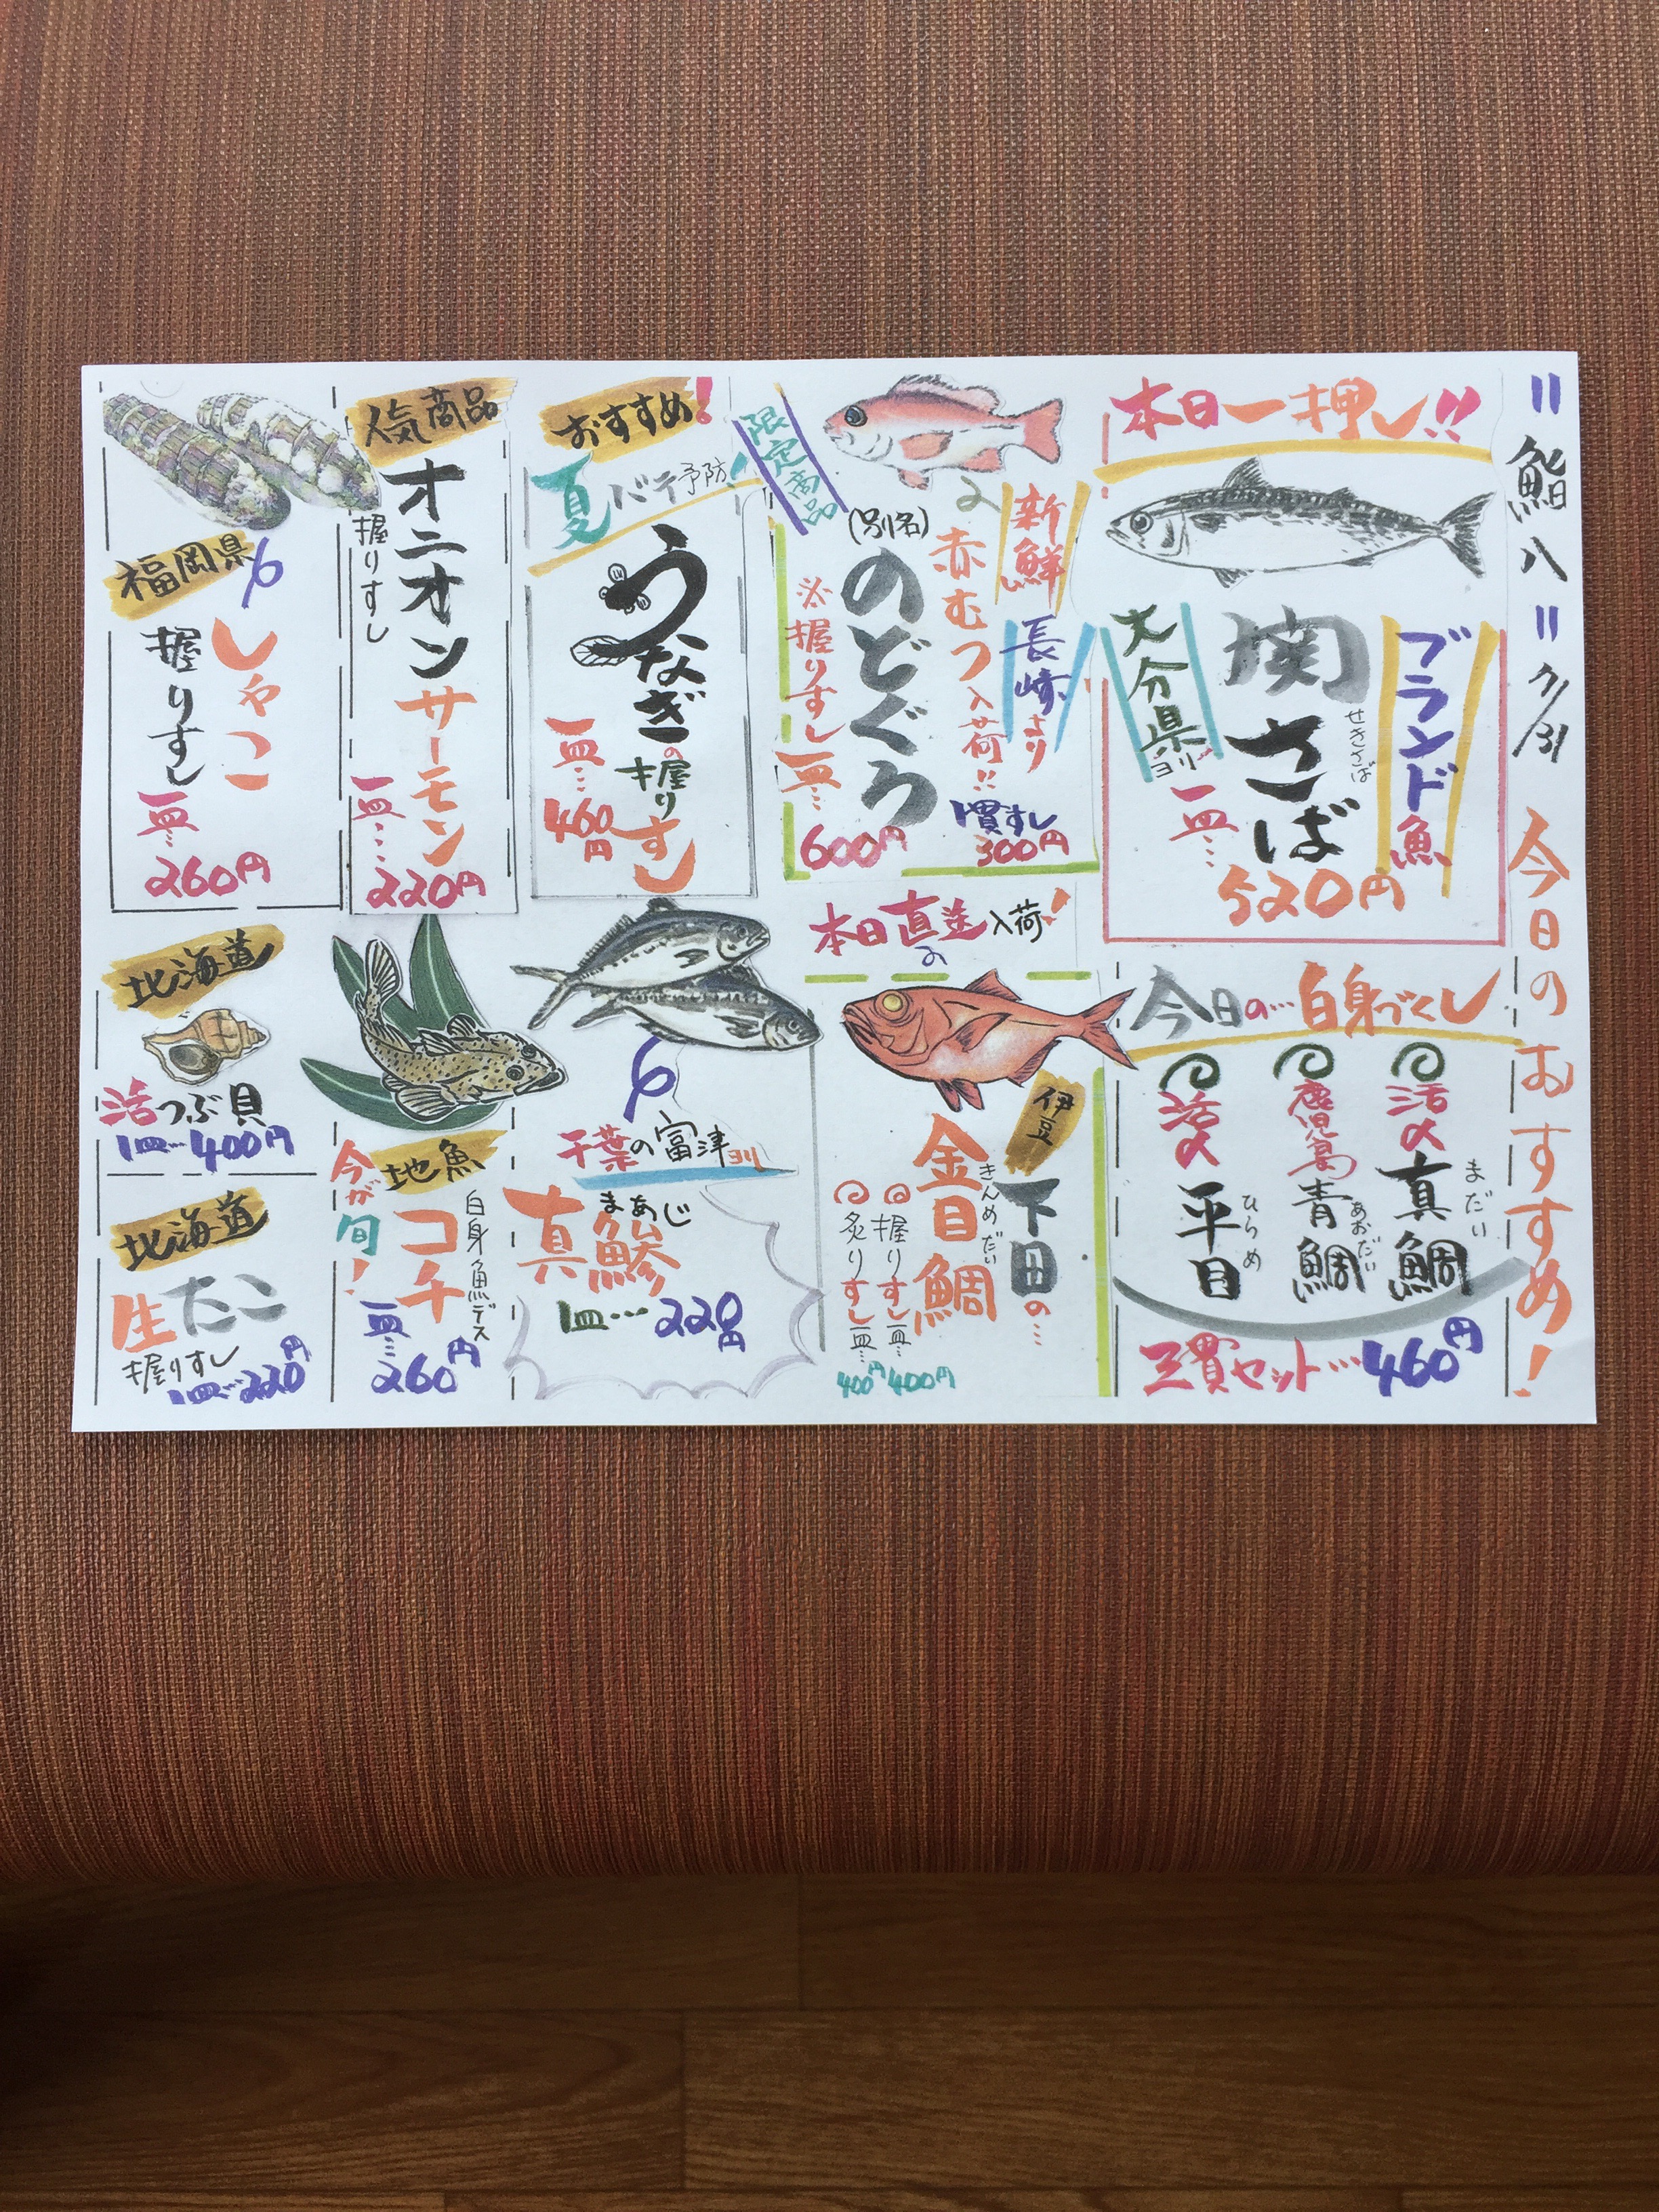 〃鮨八〃7/31
今日のおすすめ!
本日一押し!!
ブランド魚
関さば
せきさば
大分県ヨリ
一皿…
520円
限定商品
新鮮
長崎より
赤むつ入荷!!
(別名)
のどぐろ
※握りすし一皿…
600円
1貫すし
300円
おすすめ!
夏バテ予防!
うなぎの握りすし
一皿…
460円
人気商品
オニオンサーモン
握りすし
一皿…
220円
福岡県
しゃこ
握りすし
一皿…
260円
今日の…白身づくし
活〆
真鯛
まだい
鹿児島
青鯛
あおだい
活〆
平目
ひらめ
三貫セット…460円
本日直送入荷!
伊豆
下田の…
金目鯛
きんめだい
握りすし一皿…
400円
炙りすし一皿…
400円
千葉の富津ヨリ
まあじ
真鯵
1皿…220円
地魚
今が旬!
コチ
白身魚デス
一皿…
260円
北海道
活つぶ貝
1皿…400円
北海道
生たこ
握りすし
1皿…220円